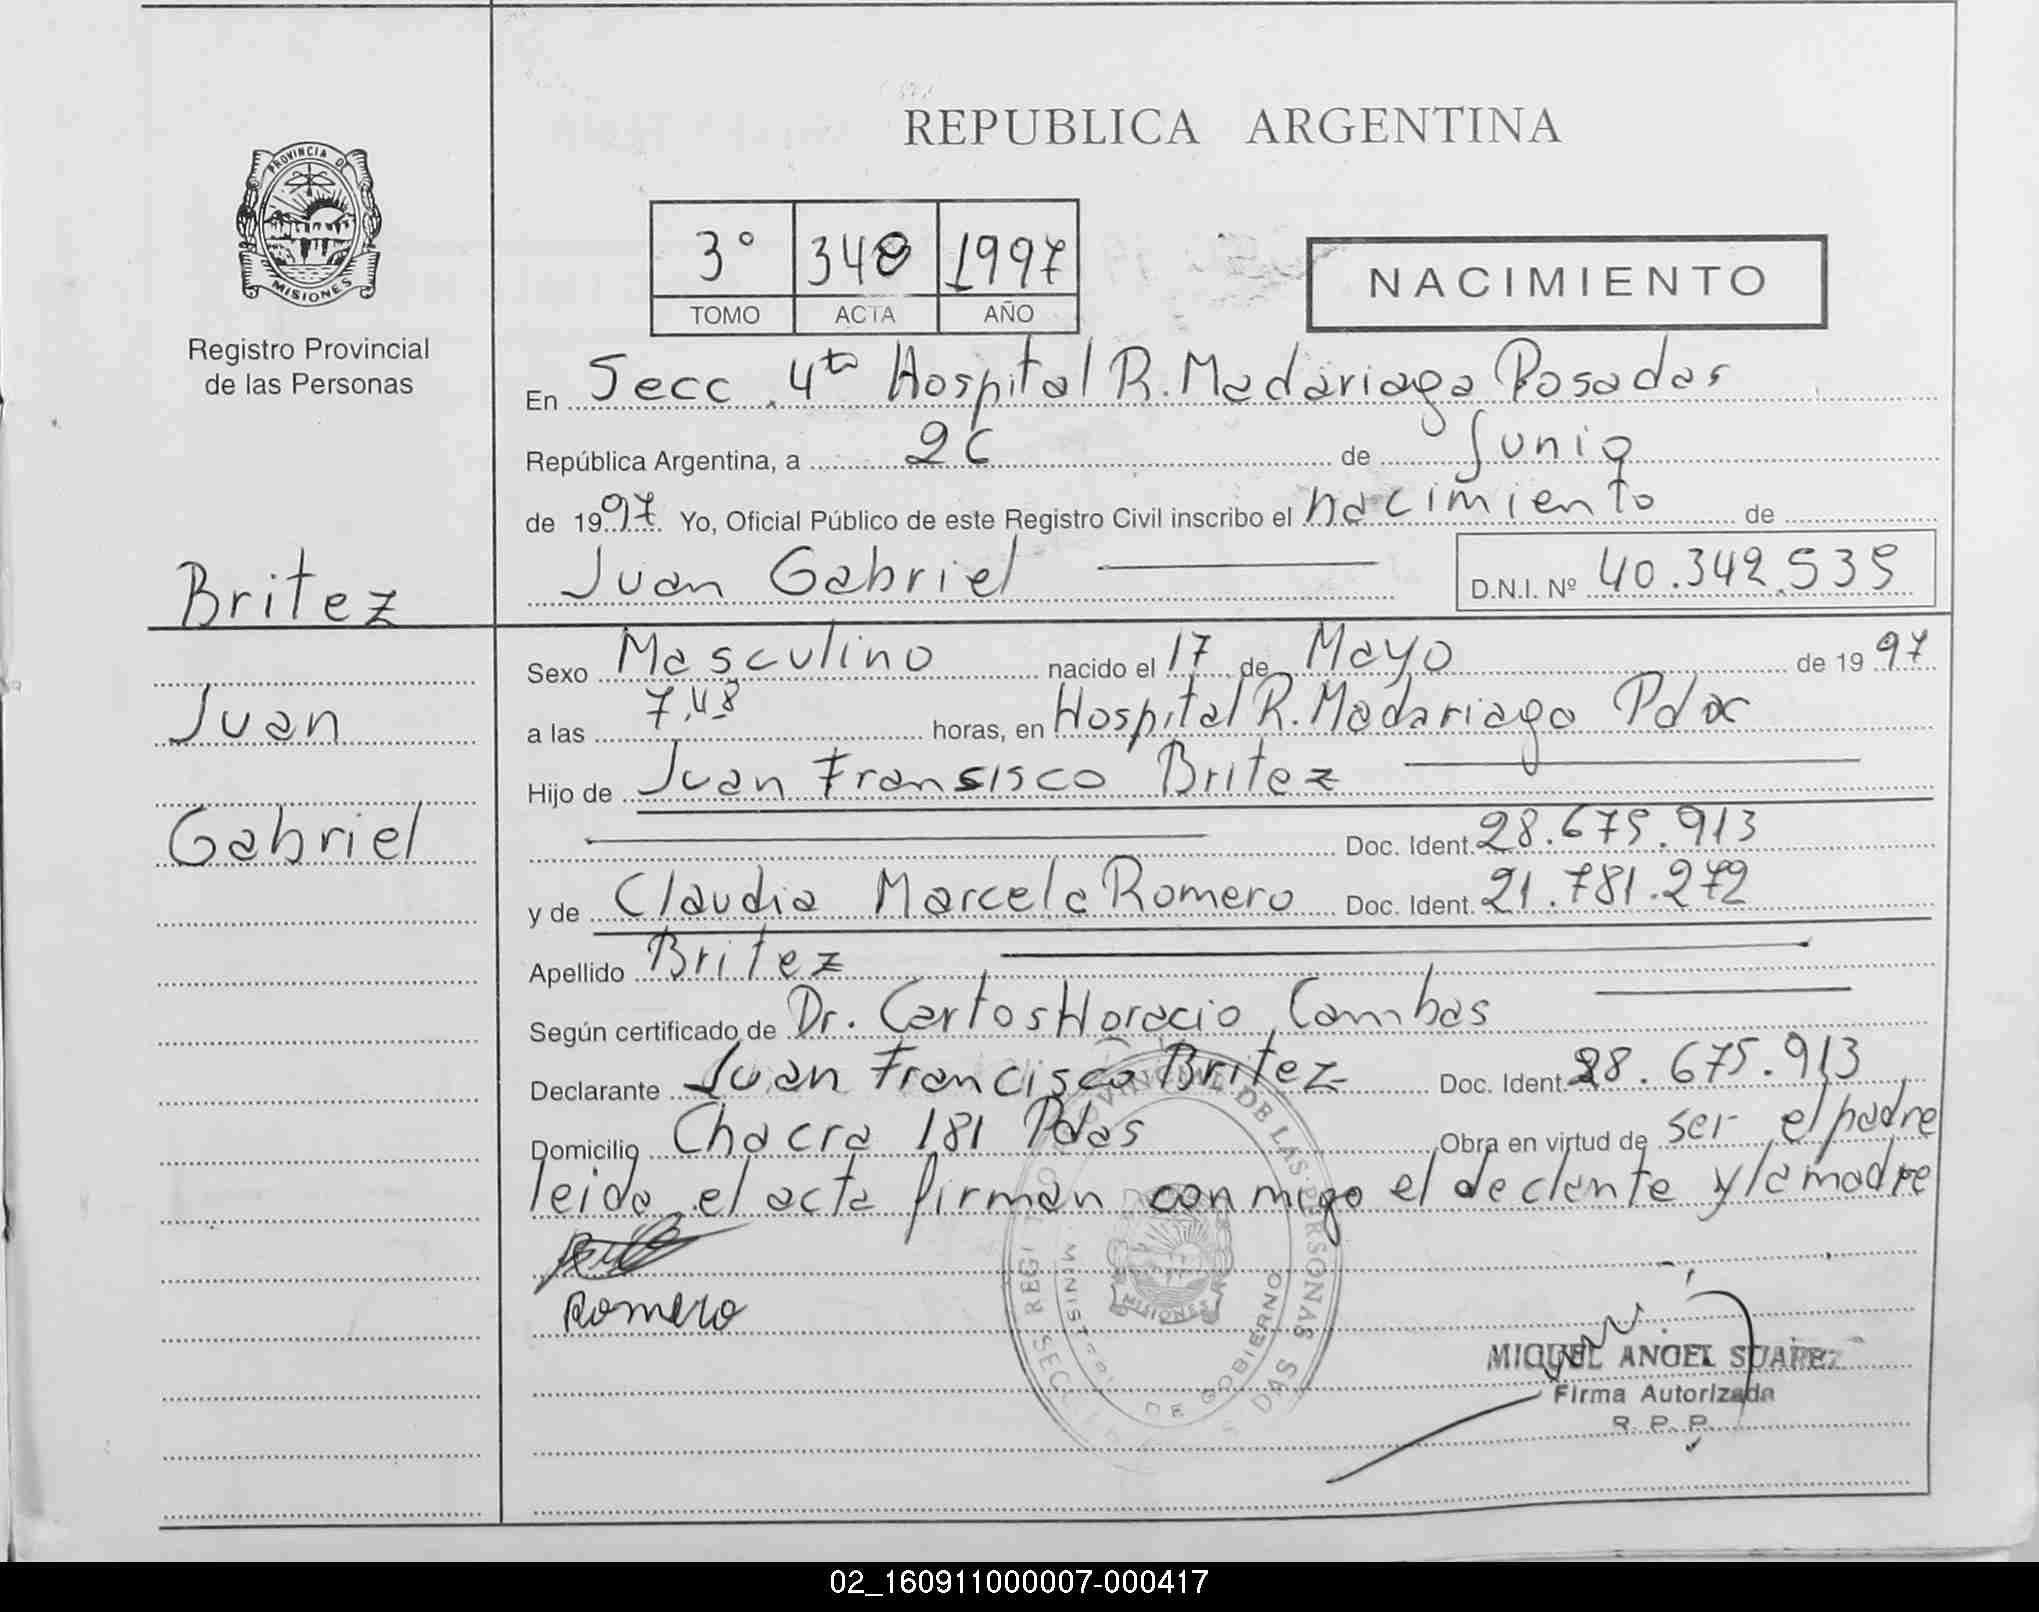 REPUBLICA ARGENTINA
PROVINCIA DE
MISIONES
Registro Provincial
de las Personas
3° 348 1997
TOMO ACTA AÑO
NACIMIENTO
En Secc. 4ta Hospital R. Madariaga Posadas
República Argentina, a 26 de Junio
de 1997 Yo, Oficial Público de este Registro Civil inscribo el nacimiento de
Juan Gabriel D.N.I. Nº 40.342.535
Britez
Juan
Gabriel
Sexo Masculino nacido el 17 de Mayo de 1997
a las 7,48 horas, en Hospital R. Madariaga Pdas
Hijo de Juan Fransisco Britez
Doc. Ident. 28.675.913
y de Claudia Marcela Romero Doc. Ident. 21.781.272
Apellido Britez
Según certificado de Dr. Carlos Horacio Cambas
Declarante Juan Francisco Britez Doc. Ident. 28.675.913
Domicilio Chacra 181 Pdas Obra en virtud de ser el padre
leida el acta firman conmigo el declante y la madre
Romero
PROVINCIAL DE LAS PERSONAS
MINISTERIO DE GOBIERNO
MISIONES
MIGUEL ANGEL SUAREZ
Firma Autorizada
R. P. P.
02_160911000007-000417